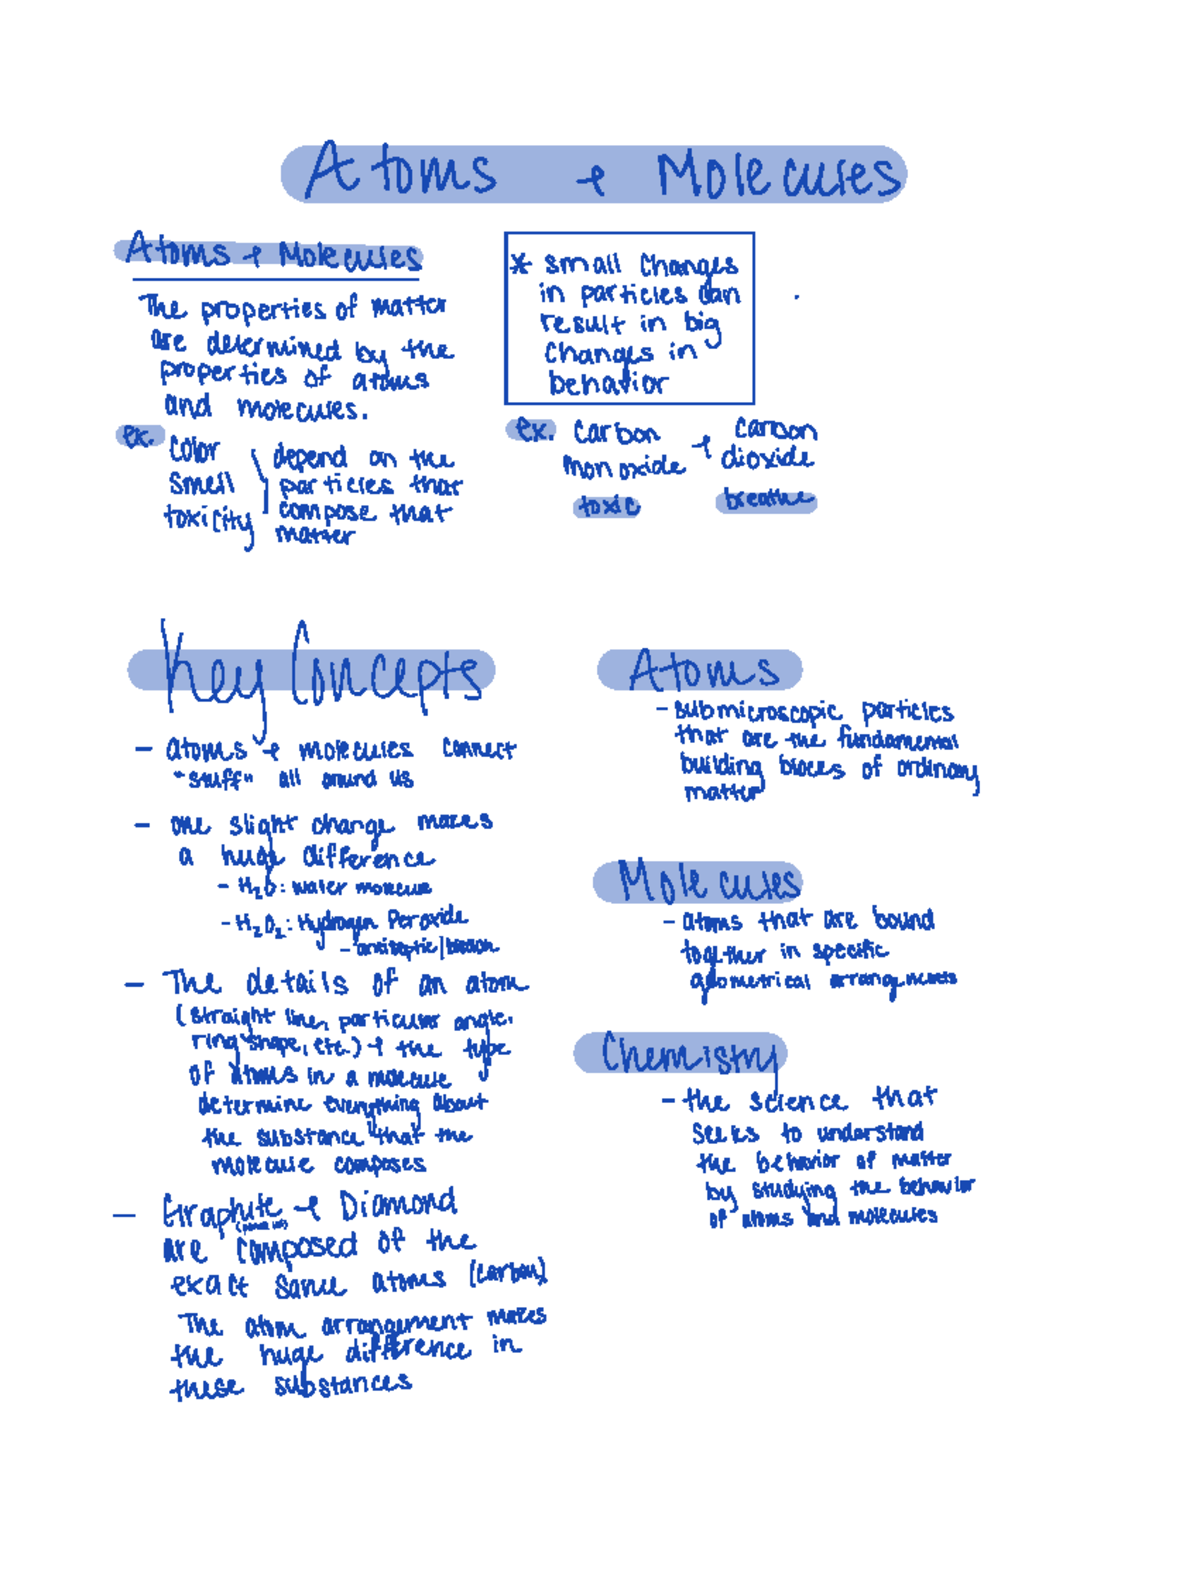 Atoms + Molecules
Atoms + Molecules
The properties of matter
are determined by the
properties of atoms
and molecules.
ex. color
smell
toxicity
depend on the
particles that
compose that
matter
* small changes
in particles can
result in big
changes in
behavior
ex. carbon
monoxide
toxic
+ carbon
dioxide
breathe
Key Concepts
- atoms + molecules connect
"stuff" all around us
- one slight change makes
a huge difference
- H₂O: water molecule
- H₂O₂: Hydrogen Peroxide
- antiseptic/bleach
- The details of an atom
(straight line, particular angle,
ring shape, etc.) + the type
of atoms in a molecule
determine everything about
the substance that the
molecule composes
- Graphite + Diamond
are composed of the
exact same atoms (carbon)
The atom arrangement makes
the huge difference in
these substances
Atoms
- submicroscopic particles
that are the fundamental
building blocks of ordinary
matter
Molecules
- atoms that are bound
together in specific
geometrical arrangements
Chemistry
- the science that
seeks to understand
the behavior of matter
by studying the behavior
of atoms and molecules